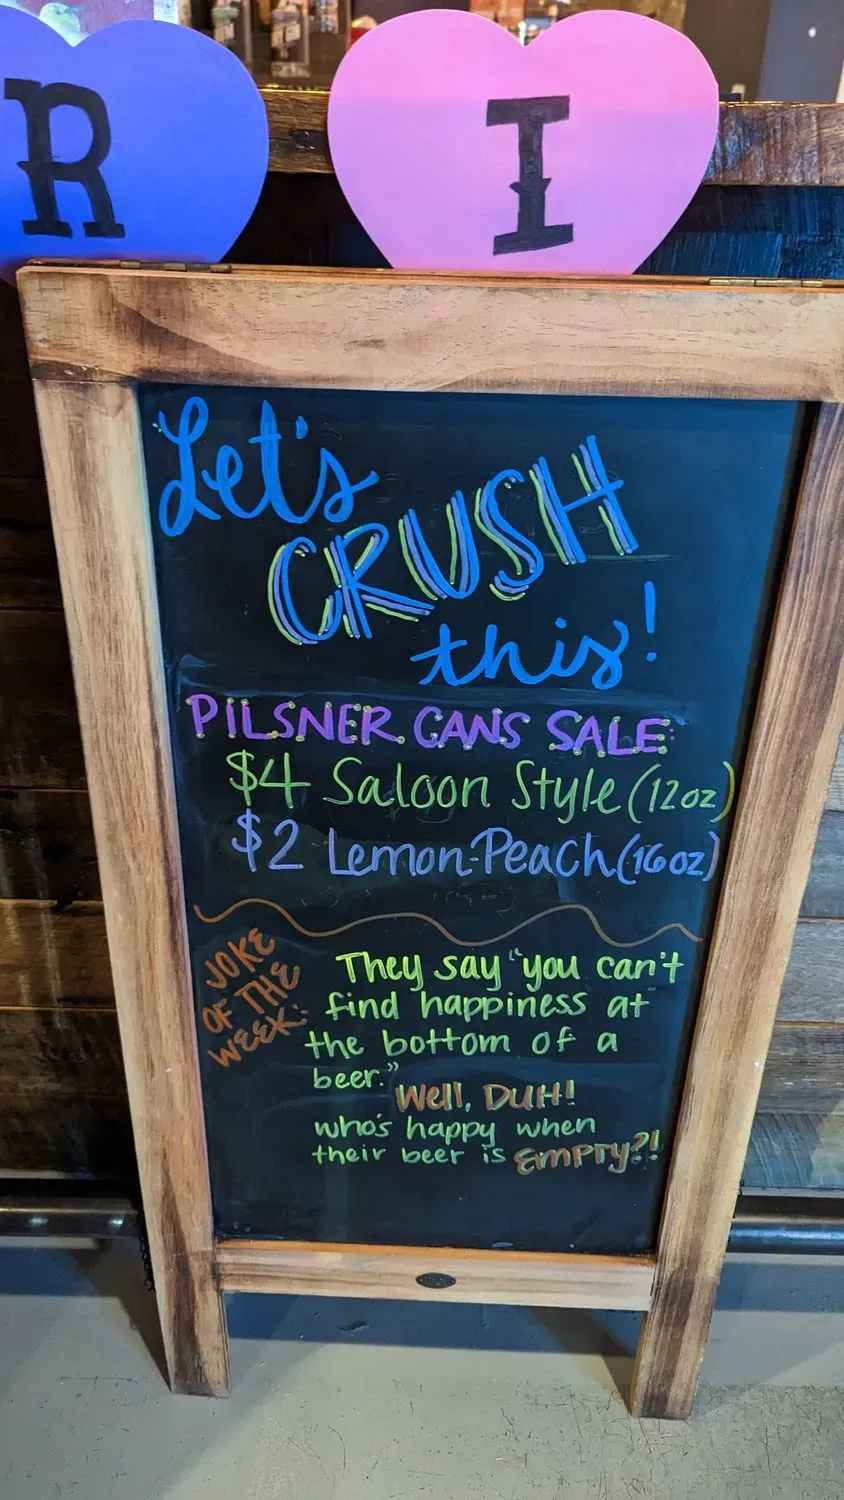 R I
Let's
CRUSH
this!
PILSNER CANS SALE
$4 Saloon Style (12oz)
$2 Lemon-Peach (16oz)
JOKE
OF THE
WEEK:
They say "you can't
find happiness at
the bottom of a
beer."
Well, DUH!
who's happy when
their beer is EMPTY?!